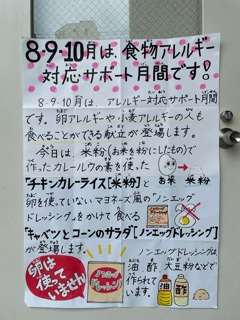 8・9・10月は、食物アレルギー
対応サポート月間です!
8・9・10月は、アレルギー対応サポート月間
です。卵アレルギーや小麦アレルギーの人も
食べることができる献立が登場します。
今日は、米粉(お米を粉にしたもの)で
作ったカレールウの素を使った
お米 米粉
「チキンカレーライス[米粉]」と
卵を使っていないマヨネーズ風の「ノンエッグ
ドレッシング」をかけて食べる
「キャベツとコーンのサラダ[ノンエッグドレッシング]」
が登場します。
卵は
使って
いません
ノンエッグ
ドレッシング
ノンエッグドレッシングは、
油 酢 大豆粉などで
作られています。
油
酢